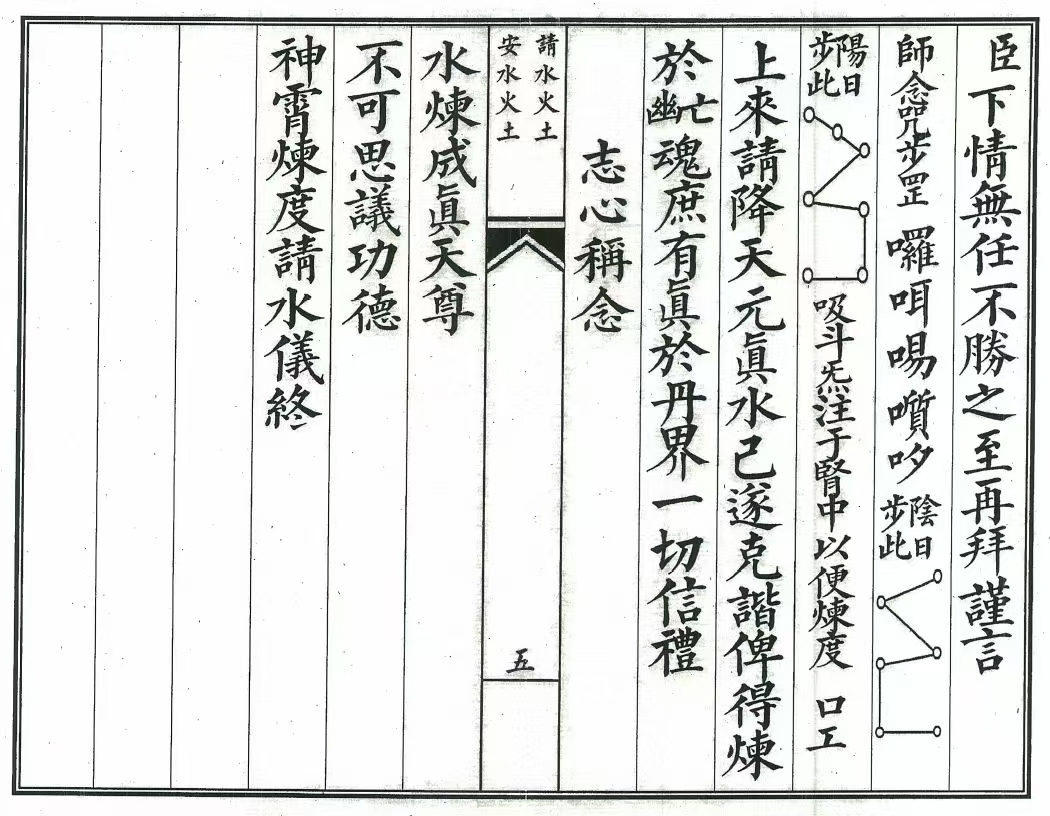 臣下情無任不勝之至再拜謹言
師念咒步罡 囉咡啺嚍哕 陰日步此
陽日步此 吸斗炁注于腎中以便煉度 口工
上來請降天元眞水已遂克諧俾得煉
於幽亡魂庶有眞於丹界一切信禮
志心稱念
請水火土
安水火土
五
水煉成眞天尊
不可思議功德
神霄煉度請水儀終